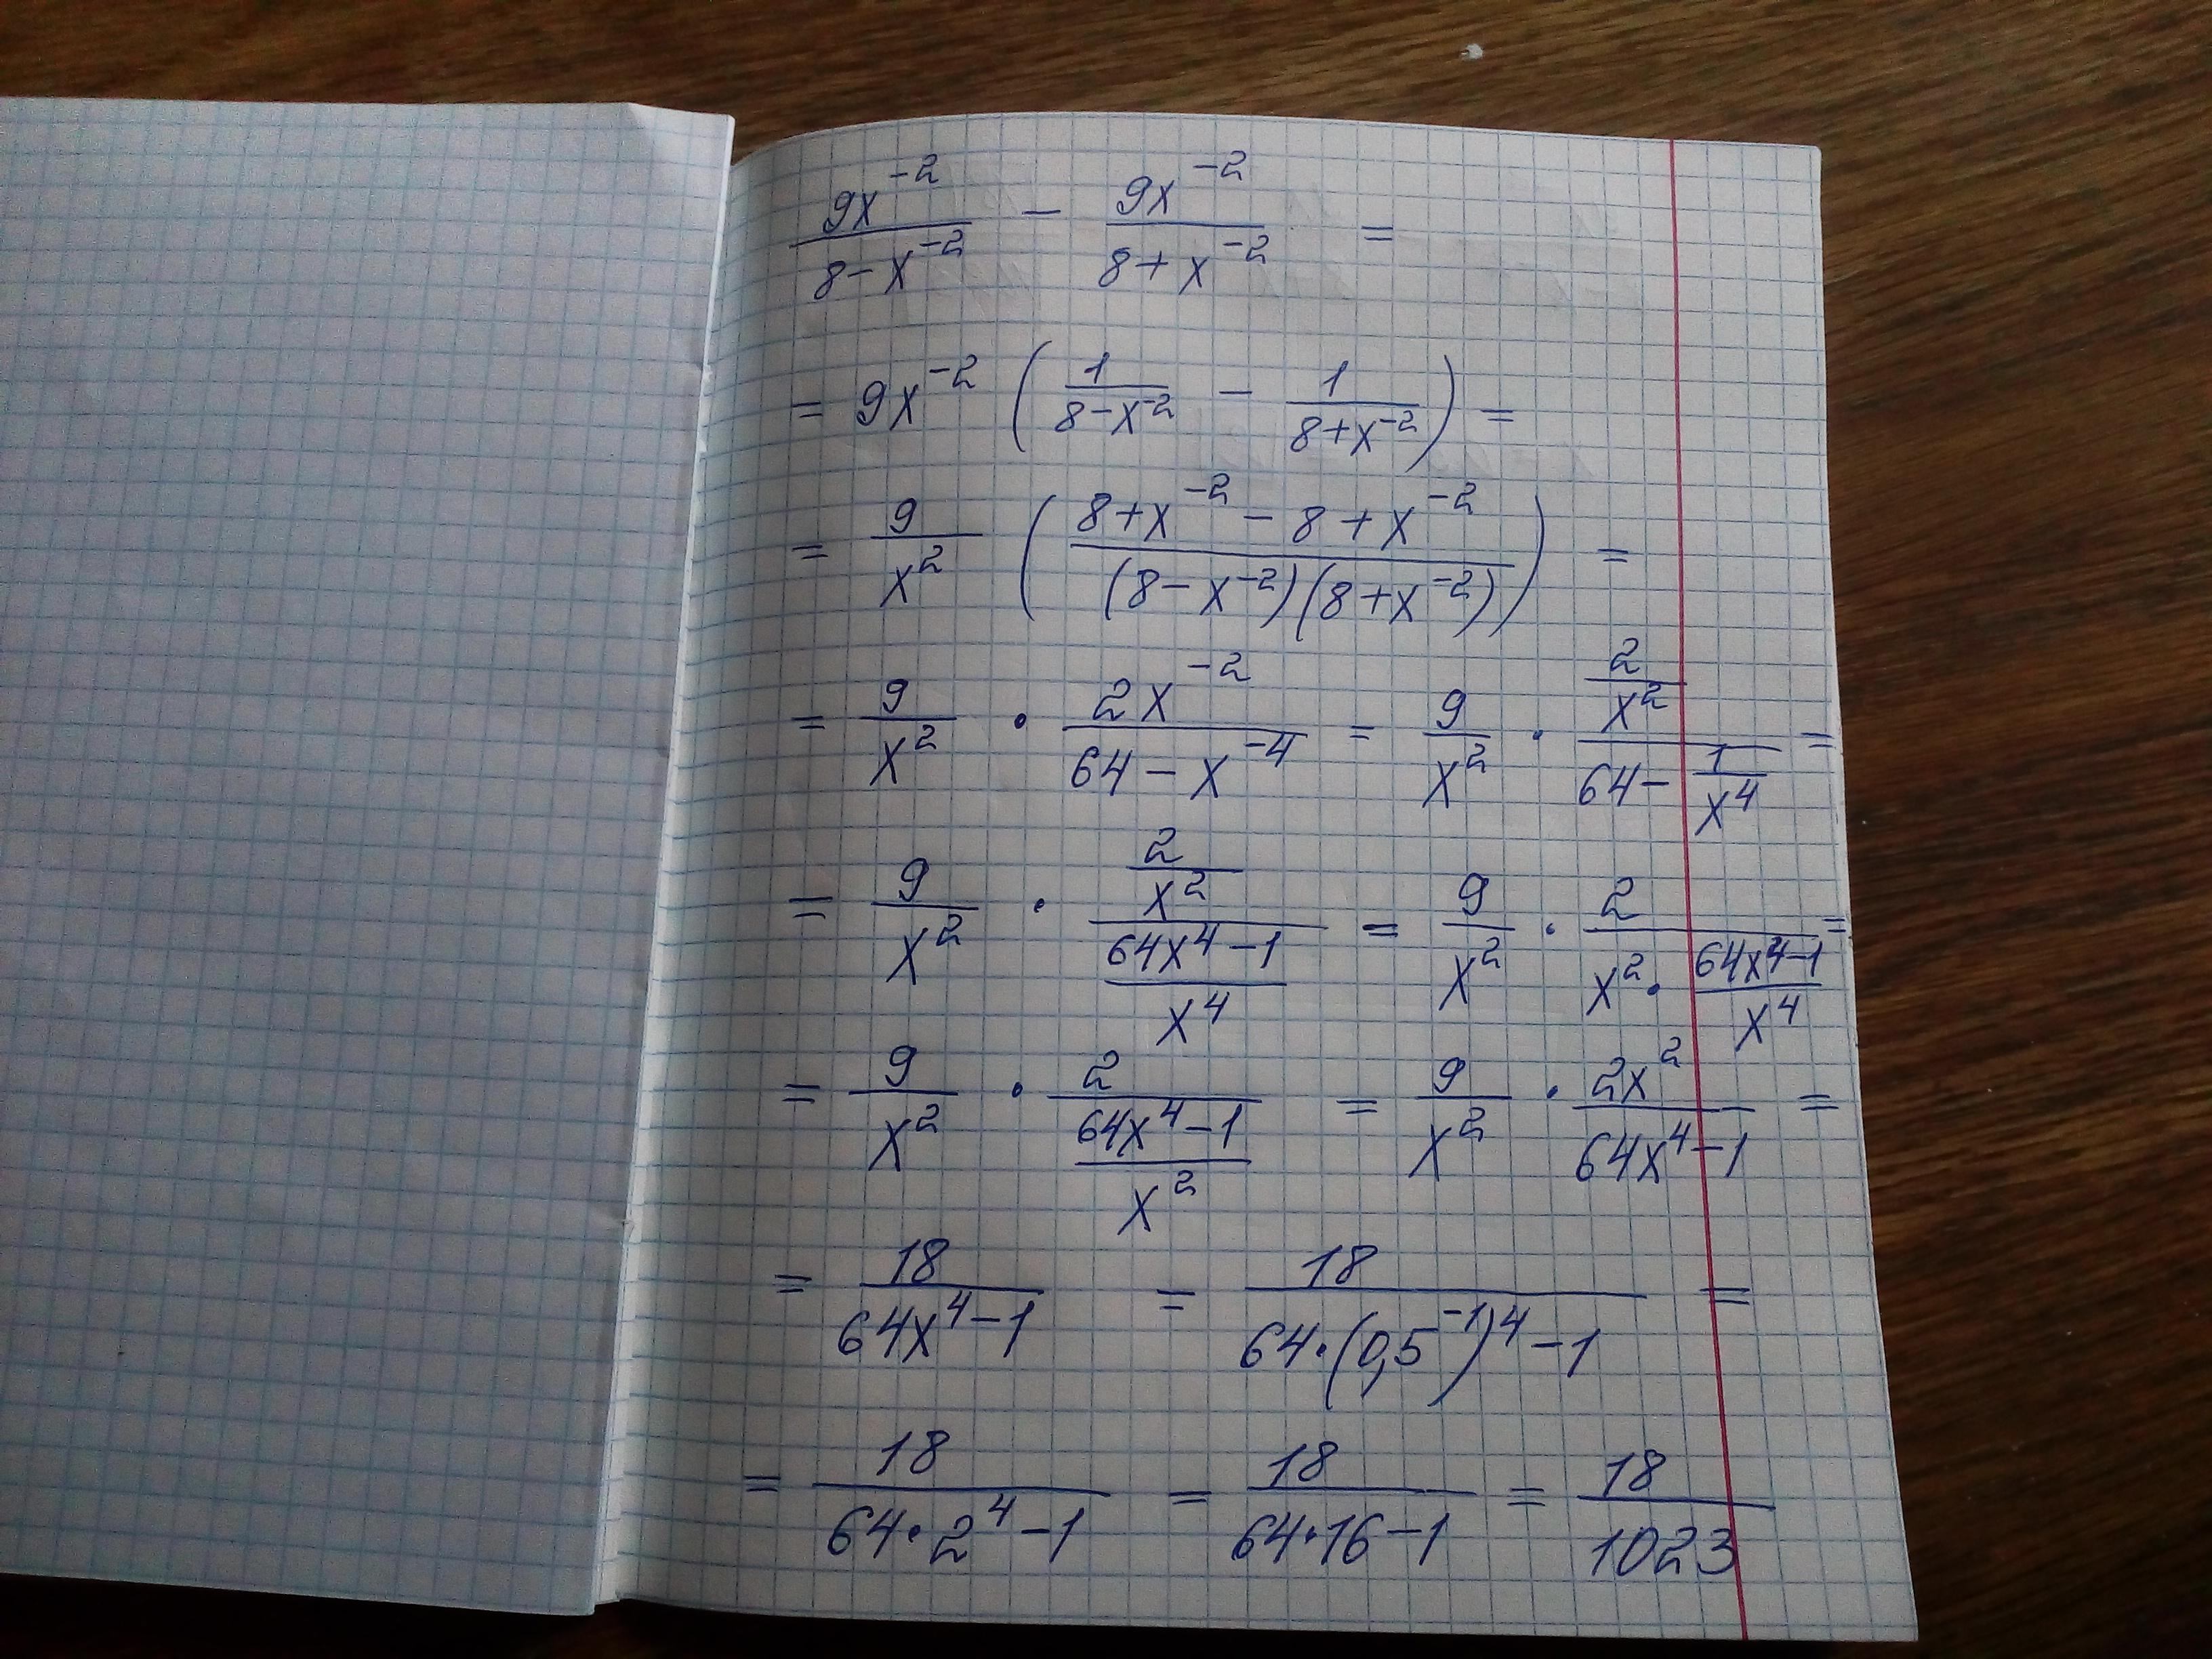 9x^-2/(8-x^-2) - 9x^-2/(8+x^-2) =
= 9x^-2 (1/(8-x^-2) - 1/(8+x^-2)) =
= 9/x^2 ((8+x^-2-8+x^-2)/((8-x^-2)(8+x^-2))) =
= 9/x^2 · 2x^-2/(64-x^-4) = 9/x^2 · (2/x^2)/(64-1/x^4) =
= 9/x^2 · (2/x^2)/((64x^4-1)/x^4) = 9/x^2 · 2/(x^2·(64x^4-1)/x^4) =
= 9/x^2 · 2/((64x^4-1)/x^2) = 9/x^2 · 2x^2/(64x^4-1) =
= 18/(64x^4-1) = 18/(64·(0,5^-1)^4-1) =
= 18/(64·2^4-1) = 18/(64·16-1) = 18/1023